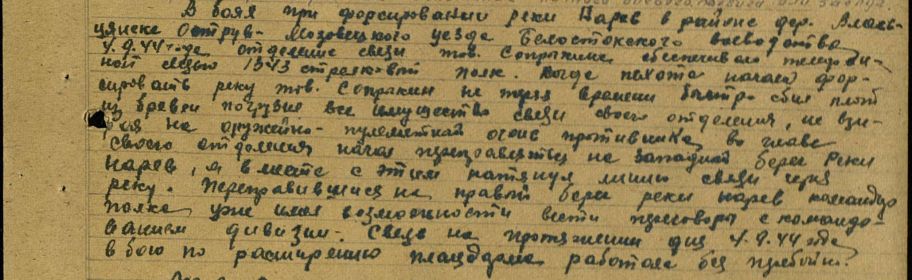 В боях при форсировании реки Нарев в районе дер.
цянске Острув-Мазовецкого уезда Белостокского воеводства
4.9.44 года отделение связи тов. Сопрыкина обеспечивало телефон-
ной связью 1343 стрелковый полк. Когда пехота начала фор-
сировать реку тов. Сопрыкин не теряя времени быстро сбил плот
из бревен погрузив все имущество связи своего отделения, не взи-
рая на оружейно-пулеметный огонь противника, во главе
своего отделения начал переправляться на западный берег реки
Нарев, и вместе с этим натянул линию связи через
реку. Переправившись на правый берег реки Нарев командир
полка уже имел возможность вести переговоры с командо-
ванием дивизии. Связь на протяжении дня 4.9.44 года
в бою по расширению плацдарма работала без перебойно.